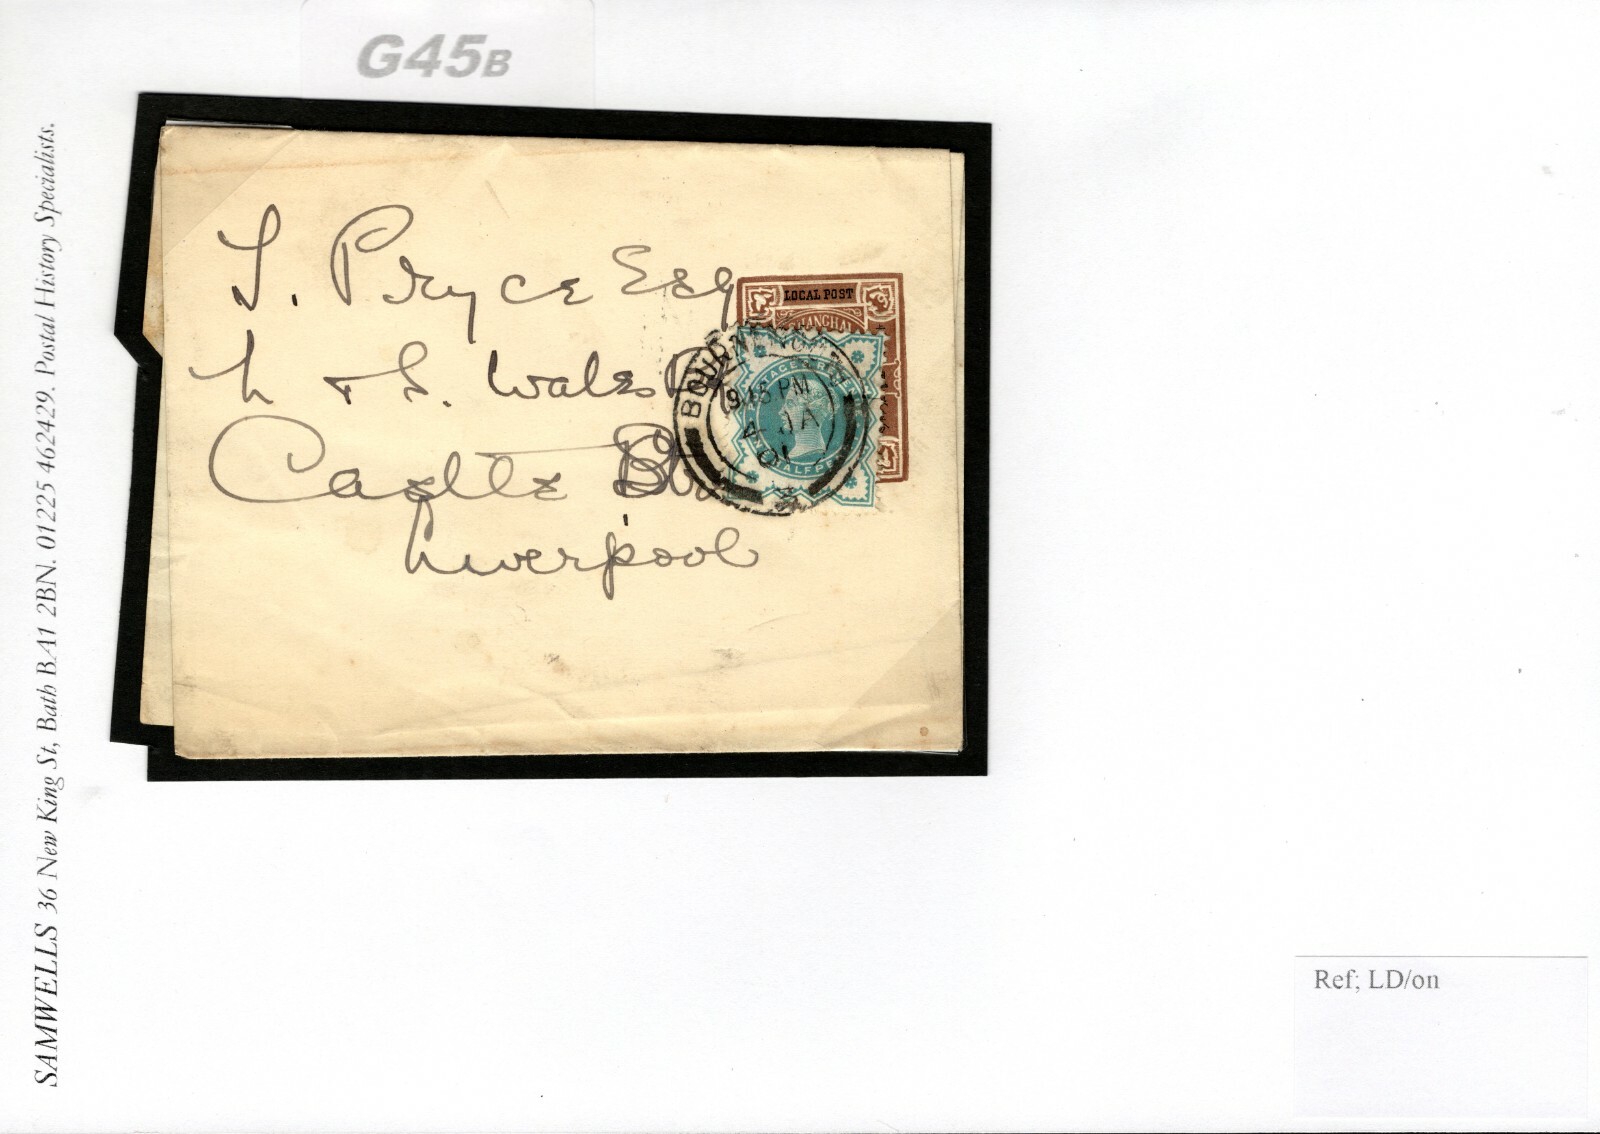 G45B
SAMWELLS 36 New King St, Bath BA1 2BN. 01225 462429. Postal History Specialists.
T. Pryce Esq
N & S. Wales B
Castle
Liverpool
LOCAL POST
SHANGHAI
BOURNEMOUTH
9.15 PM
4 JA
01
POSTAGE & REVENUE
HALFPENNY
Ref; LD/on